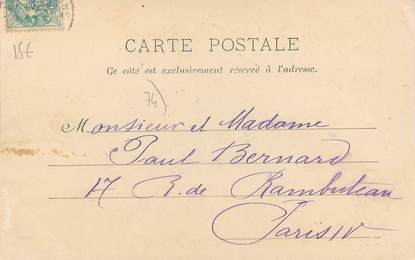 15€
CARTE POSTALE
Ce côté est exclusivement réservé à l'adresse.
74
Monsieur et Madame
Paul Bernard
17 R. de Rambuteau
Paris IV